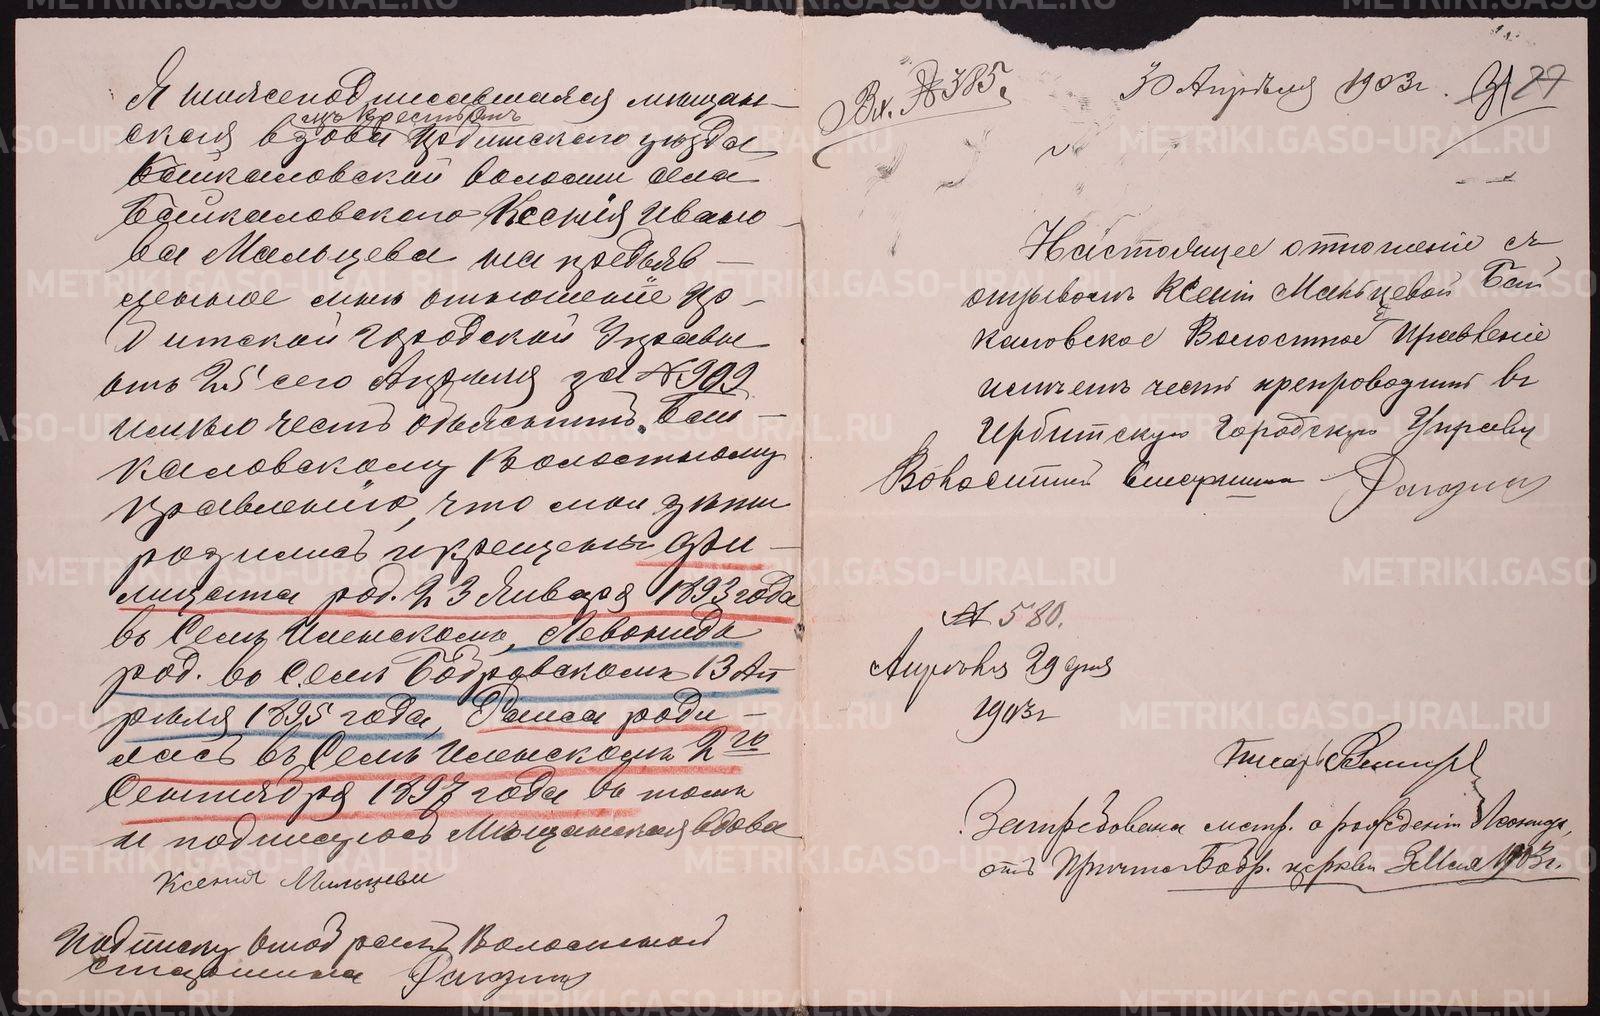 Я нижеподписавшаяся мещан-
ская вдова изъ крестьянъ Ирбитскаго уѣзда
Байкаловской волости села
Байкаловскаго Ксенія Ивано-
ва Мальцева на предъяв-
ленное мнѣ отношеніе Ир-
битской Городской Управы
отъ 25 сего Апрѣля за № 909
имѣю честь объяснить Бай-
каловскому Волостному
правленію, что мои дѣти
родились и крещены Фи-
лицата род. 23 Января 1893 года
въ Селѣ Иленскомъ, Левонидъ
род. во Селѣ Бобровскомъ 13 Ап-
рѣля 1895 года, Раиса роди-
лась въ Селѣ Иленскомъ 2го
Сентября 1897 года въ томъ
и подписуюсь Мѣщанская вдова
Ксенія Мальцева
Подписку отобралъ Волостной
старшина
Вх. № 385.
30 Апрѣля 1903 г.
29
Настоящее отношеніе съ
отзывомъ Ксеніи Мальцевой Бай
каловское Волостное Правленіе
имѣетъ честь препроводить въ
Ирбитскую Городскую Управу
Волостной Старшина
№ 580.
Апрѣля 29 дня
1903 г
Писарь
Затребована метр. о рожденіи Леонида,
отъ Причта Бобр. церкви 3 Мая 1903 г.
METRIKI.GASO-URAL.RU